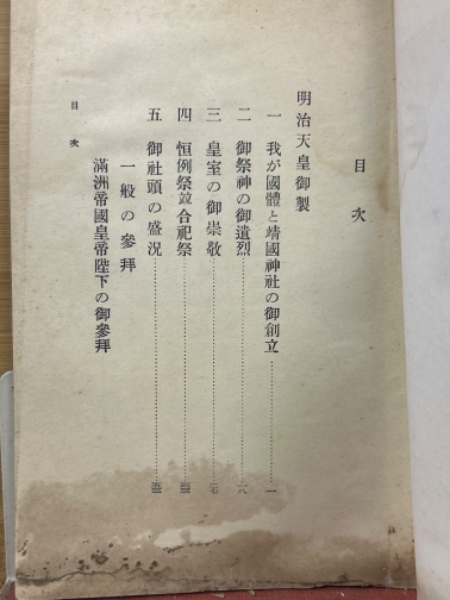 目次
明治天皇御製
一 我が國體と靖國神社の御創立…………一
二 御祭神の御遺烈…………八
三 皇室の御崇敬…………
四 恒例祭竝合祀祭…………
五 御社頭の盛況…………
一般の參拜
滿洲帝國皇帝陛下の御參拜
目次